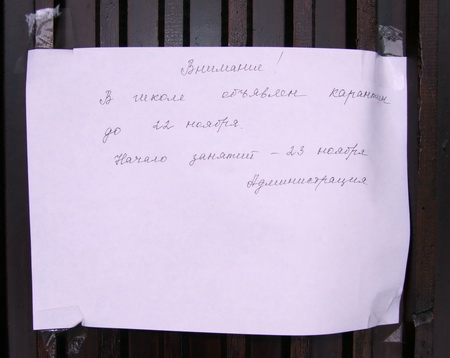 Внимание!
В школе объявлен карантин
до 22 ноября.
Начало занятий - 23 ноября
Администрация